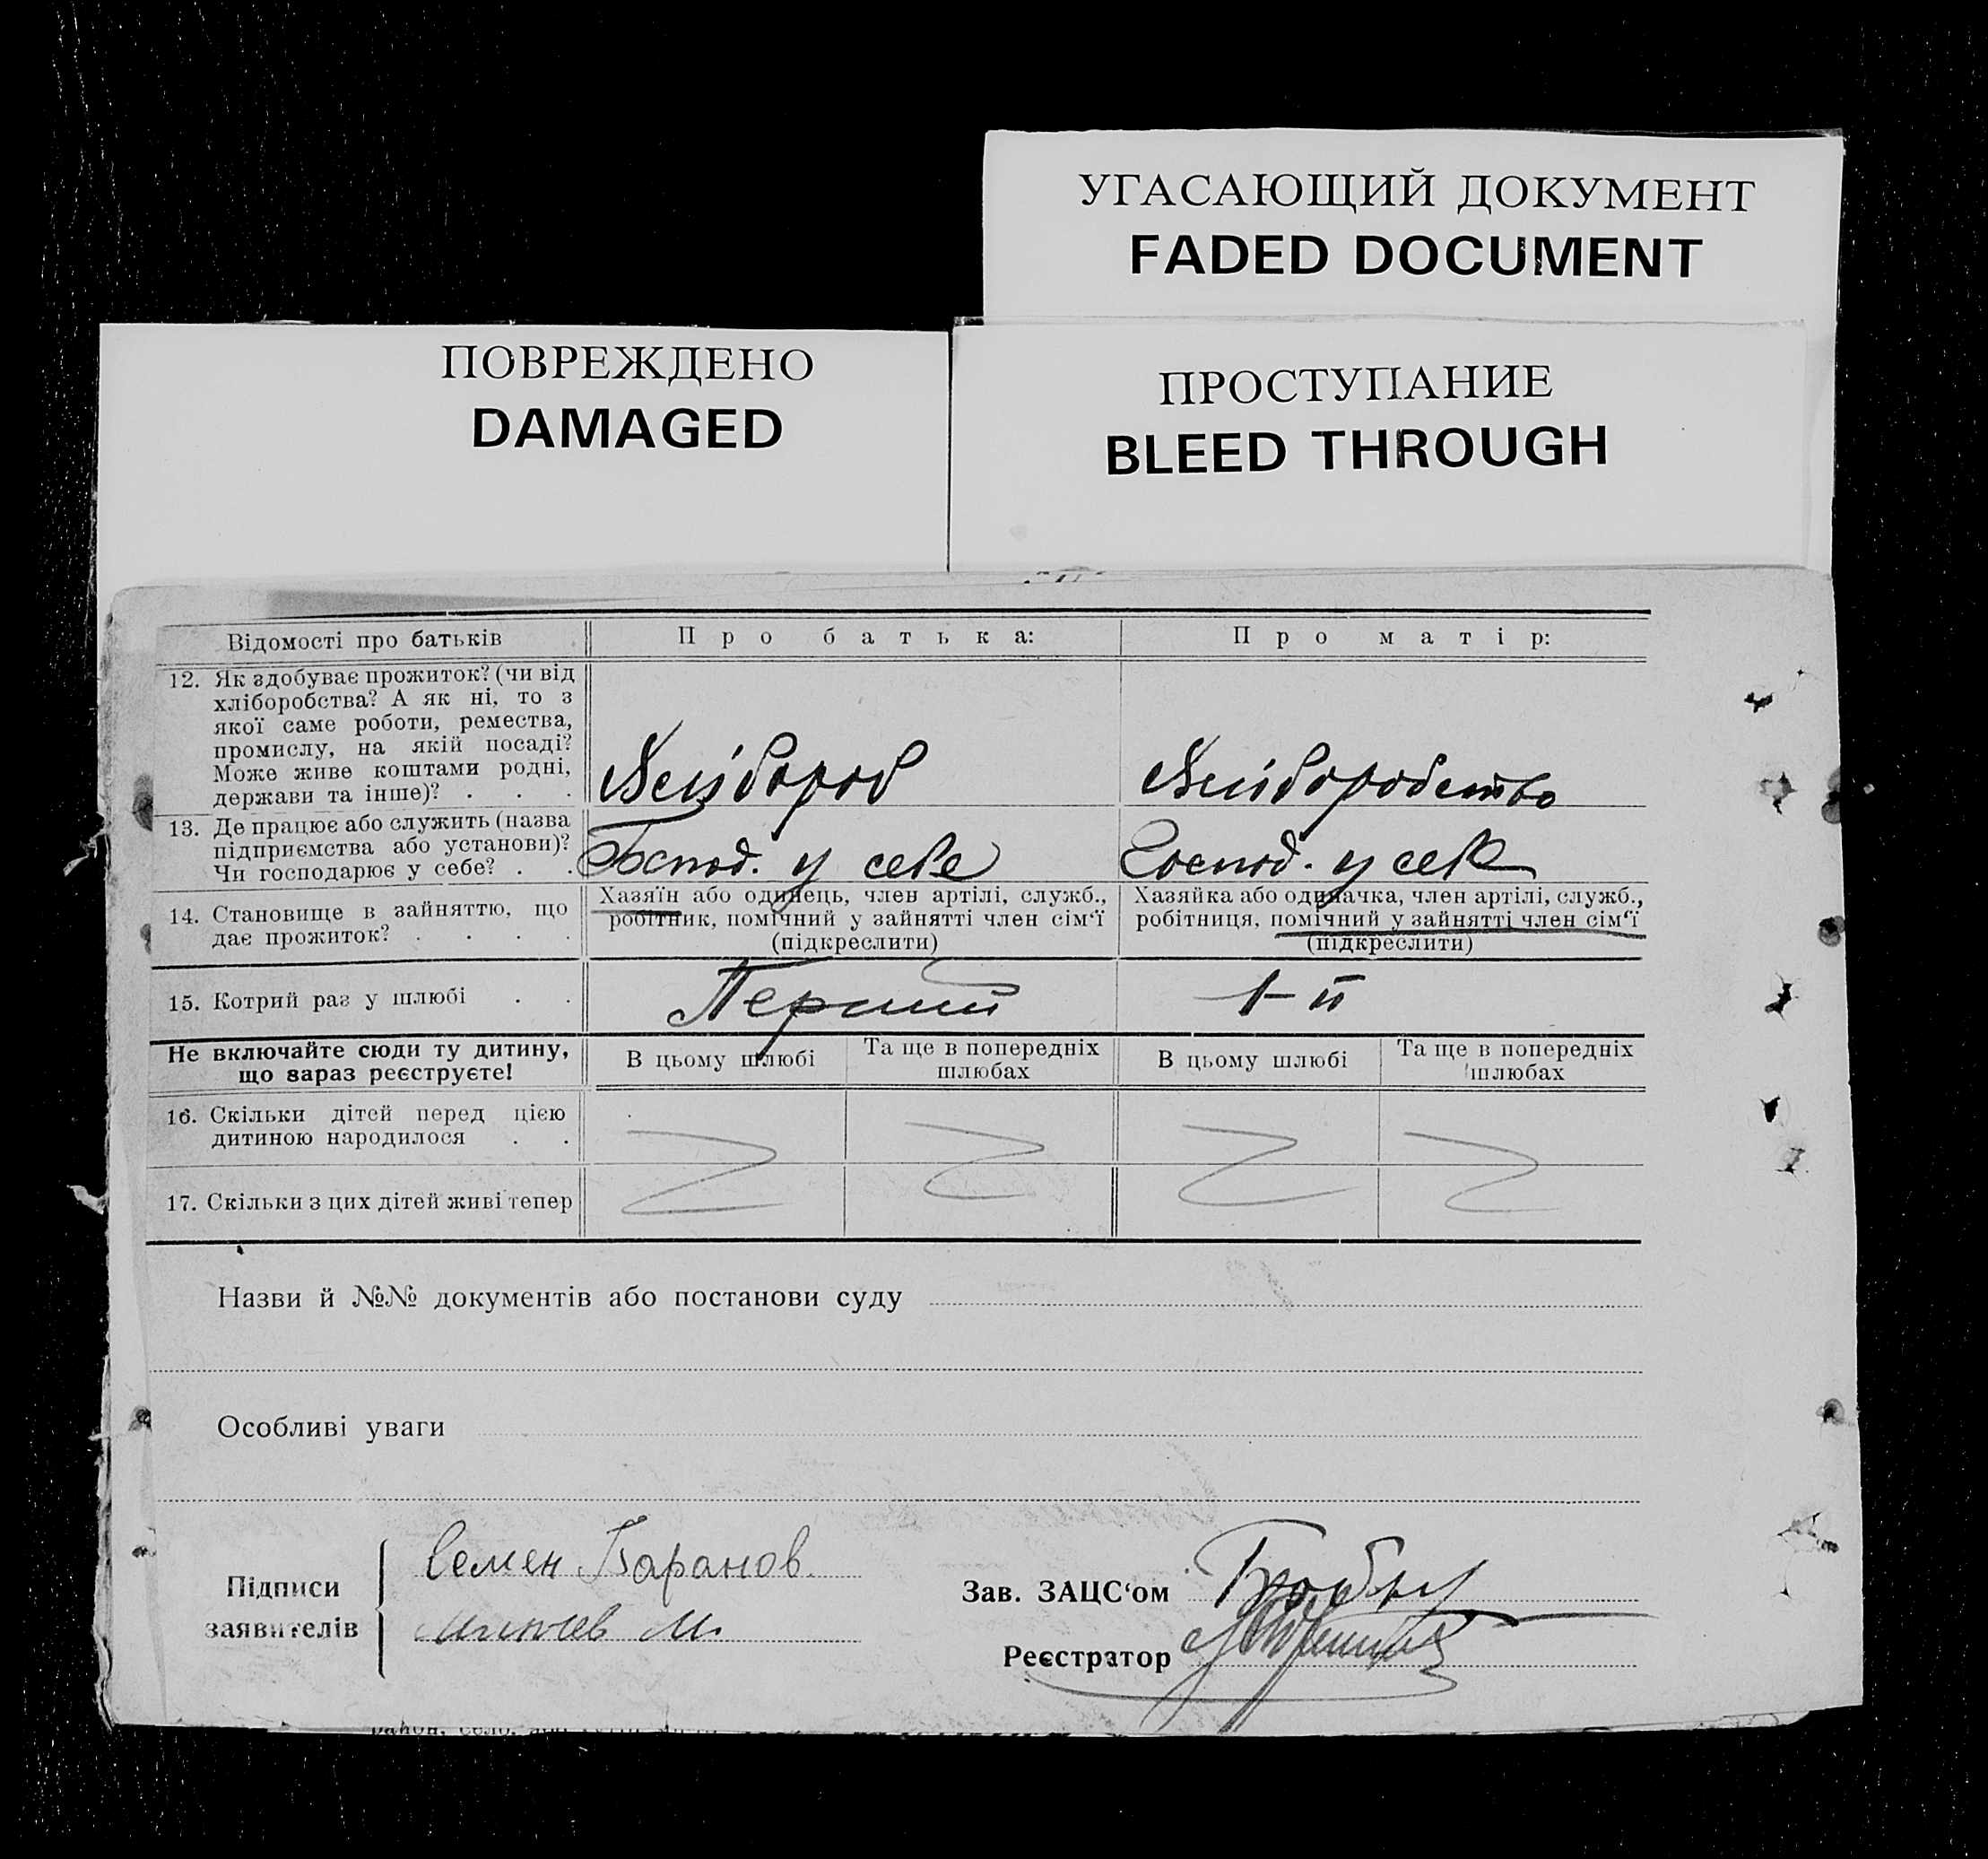 УГАСАЮЩИЙ ДОКУМЕНТ
FADED DOCUMENT
ПОВРЕЖДЕНО
DAMAGED
ПРОСТУПАНИЕ
BLEED THROUGH
Відомості про батьків
Про батька:
Про матір:
12. Як здобуває прожиток? (чи від
хліборобства? А як ні, то з
якої саме роботи, ремества,
промислу, на якій посаді?
Може живе коштами родні,
держави та інше)? . . .
Хлібороб
Хліборобство
13. Де працює або служить (назва
підприємства або установи)?
Чи господарює у себе? . .
Господ. у себе
Господ. у себе
14. Становище в зайняттю, що
дає прожиток? . . . .
Хазяїн або одинець, член артілі, служб.,
робітник, помічний у зайнятті член сім‘ї
(підкреслити)
Хазяйка або одиначка, член артілі, служб.,
робітниця, помічний у зайнятті член сім‘ї
(підкреслити)
15. Котрий раз у шлюбі . .
Перший
1-й
Не включайте сюди ту дитину,
що зараз реєструєте!
В цьому шлюбі
Та ще в попередніх
шлюбах
В цьому шлюбі
Та ще в попередніх
шлюбах
16. Скільки дітей перед цією
дитиною народилося . .
17. Скільки з цих дітей живі тепер
Назви й №№ документів або постанови суду
Особливі уваги
Підписи
заявителів
Семен Баранов
М.
Зав. ЗАЦС‘ом
Реєстратор
район, село,